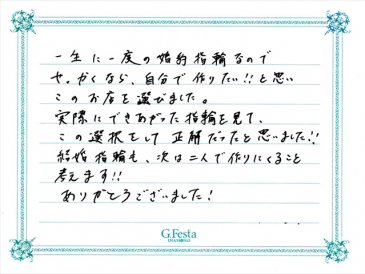 一生に一度の婚約指輪なので
せっかくなら、自分で作りたい!!と思い
このお店を選びました。
実際にできあがった指輪を見て、
この選択をして正解だったと思いました!!
結婚指輪も、次は二人で作りにくること
考えます!!
ありがとうございました!
G.Festa
DIAMOND